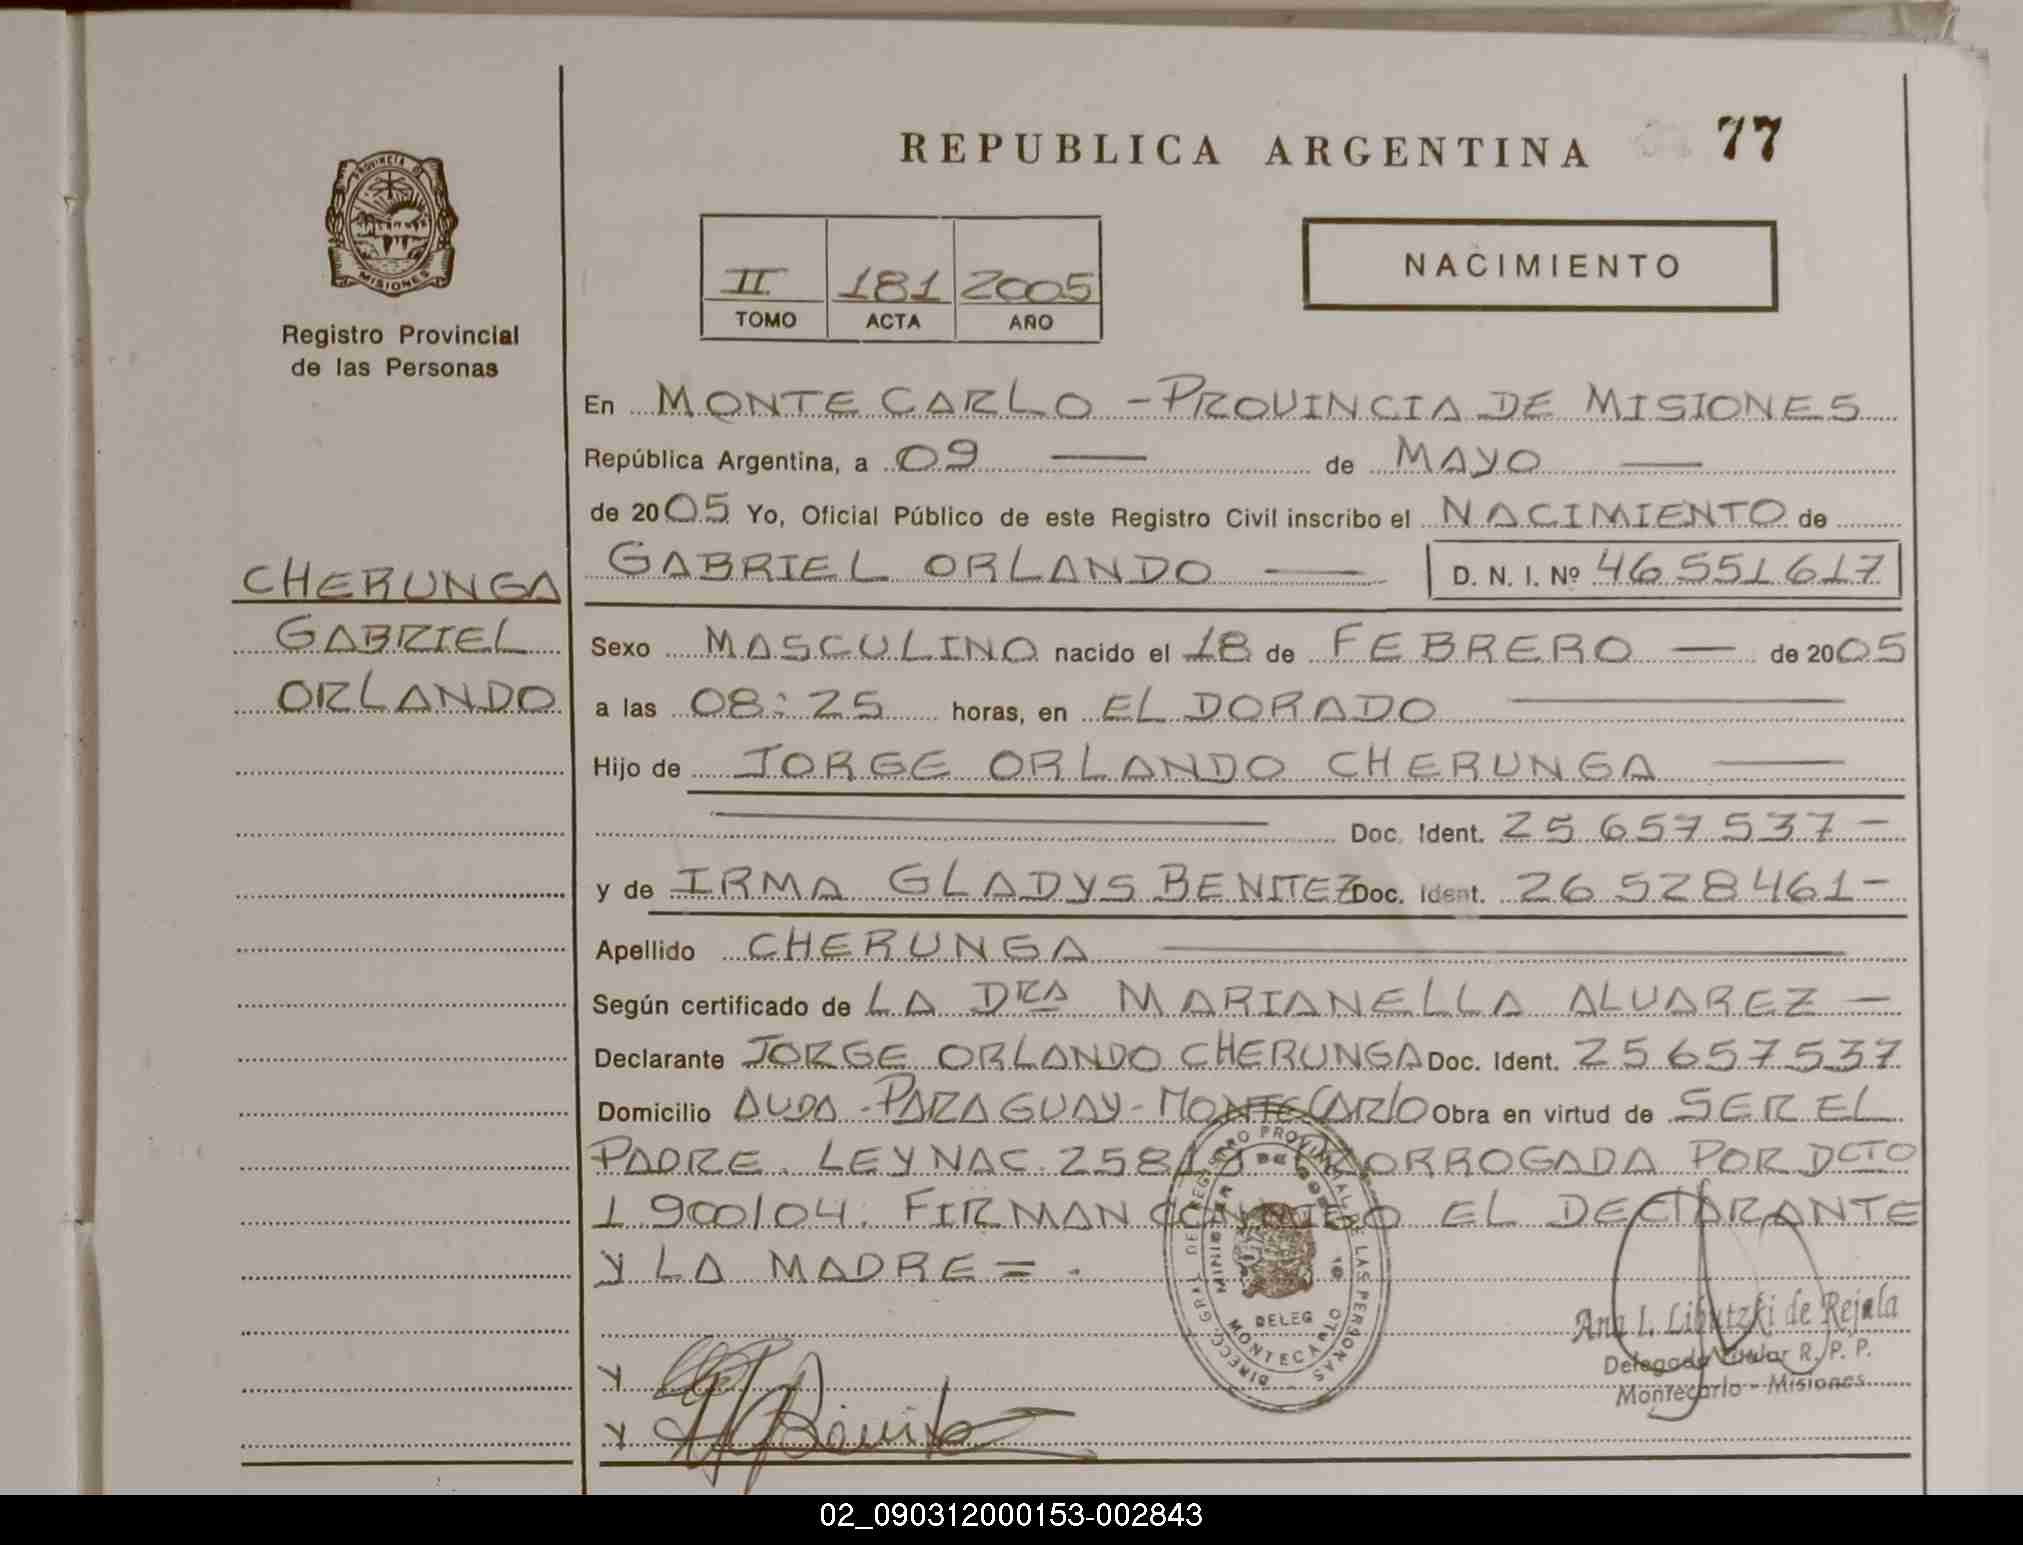 REPUBLICA ARGENTINA 77
PROVINCIA DE
MISIONES
Registro Provincial
de las Personas
II 181 2005
TOMO ACTA AÑO
NACIMIENTO
CHERUNGA
GABRIEL
ORLANDO
En MONTECARLO - PROVINCIA DE MISIONES
República Argentina, a 09 — de MAYO —
de 2005 Yo, Oficial Público de este Registro Civil inscribo el NACIMIENTO de
GABRIEL ORLANDO — D. N. I. Nº 46 551 617
Sexo MASCULINO nacido el 18 de FEBRERO — de 2005
a las 08:25 horas, en EL DORADO —
Hijo de JORGE ORLANDO CHERUNGA —
— Doc. Ident. 25 657 537 -
y de IRMA GLADYS BENITEZ Doc. Ident. 26 528 461 -
Apellido CHERUNGA —
Según certificado de LA DRA MARIANELLA ALVAREZ —
Declarante JORGE ORLANDO CHERUNGA Doc. Ident. 25 657 537
Domicilio AVDA - PARAGUAY - MONTECARLO Obra en virtud de SER EL
PADRE. LEY NAC. PRORROGADA POR DCTO
1900/04. FIRMAN CONMIGO EL DECLARANTE
Y LA MADRE = .
DIRECC. GRAL. DE REGISTRO PROVINCIAL DE LAS PERSONAS
DELEG
MONTECARLO
Ana I. Libutzki de Rejala
Delegada Titular R. P. P.
Montecarlo - Misiones
02_090312000153-002843